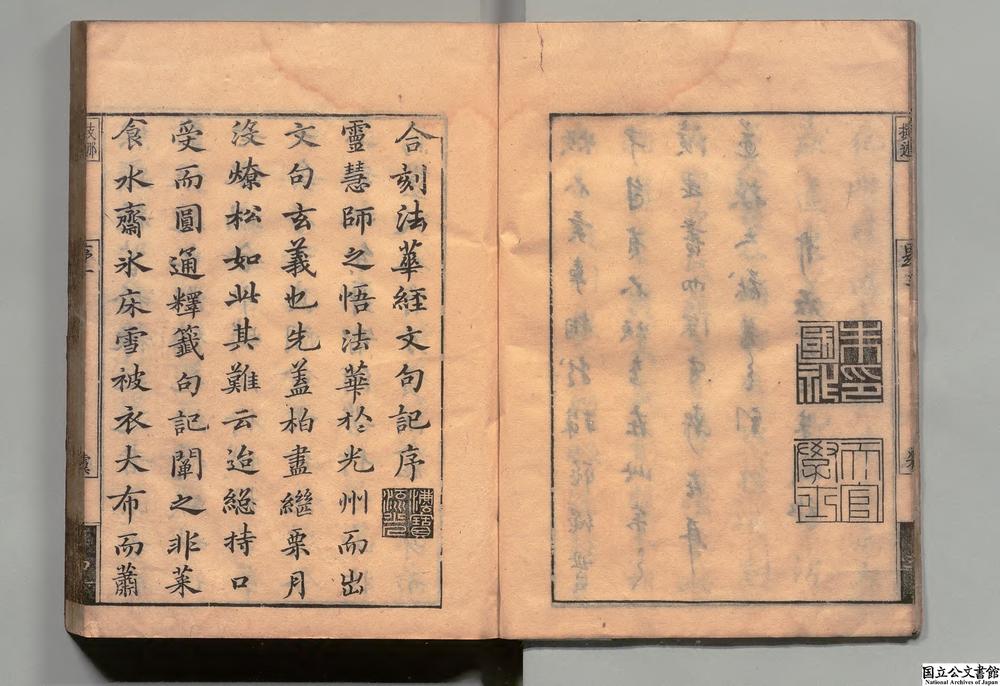 撰述
朱印國祚
天官學士
合刻法華經文句記序
靈慧師之悟法華扵光州而出
文句玄義也先蓋柏盡繼栗月
沒燎松如此其難云迨緫持口
受而圓通釋籤句記闡之非菜
食水齋氷床雪被衣大布而蕭
支那
国立公文書館
National Archives of Japan